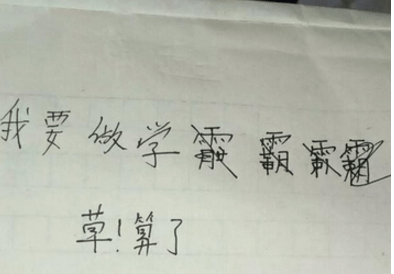 我要做学霸
草!算了